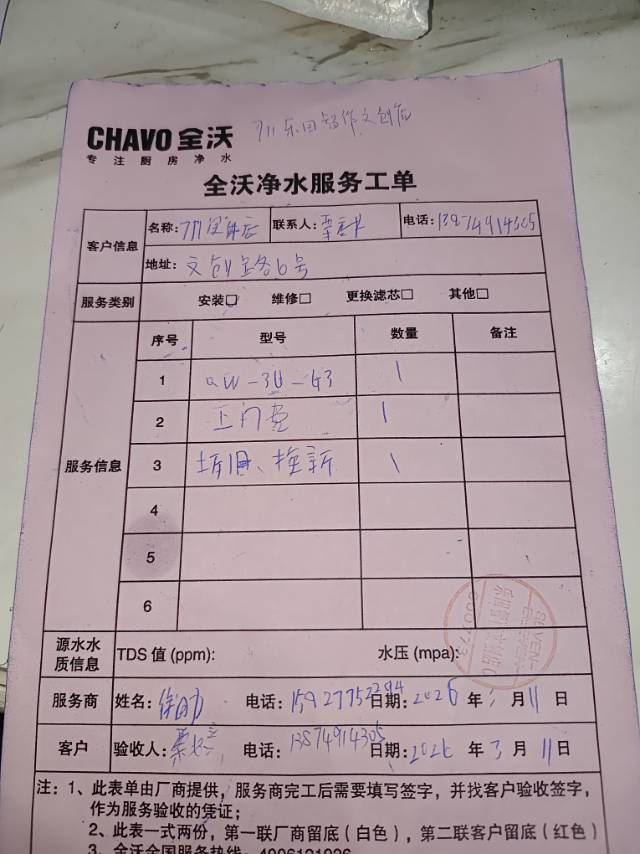 CHAVO 全沃
专注厨房净水
711乐田智作文创店
全沃净水服务工单
客户信息
名称: 联系人: 电话:13874914305
地址: 文创 6号
服务类别 安装□ 维修□ 更换滤芯□ 其他□
服务信息
序号 型号 数量 备注
1 QW-3U-G3 1
2 上门费 1
3 拆旧、换新 1
4
5
6
源水水质信息 TDS 值 (ppm): 水压 (mpa):
服务商 姓名: 电话: 日期:2026 年 3 月 11 日
客户 验收人: 电话:13874914305 日期:2026 年 3 月 11 日
注: 1、此表单由厂商提供，服务商完工后需要填写签字，并找客户验收签字，
作为服务验收的凭证；
2、此表一式两份，第一联厂商留底（白色），第二联客户留底（红色）
3、全沃全国服务热线：4006121026